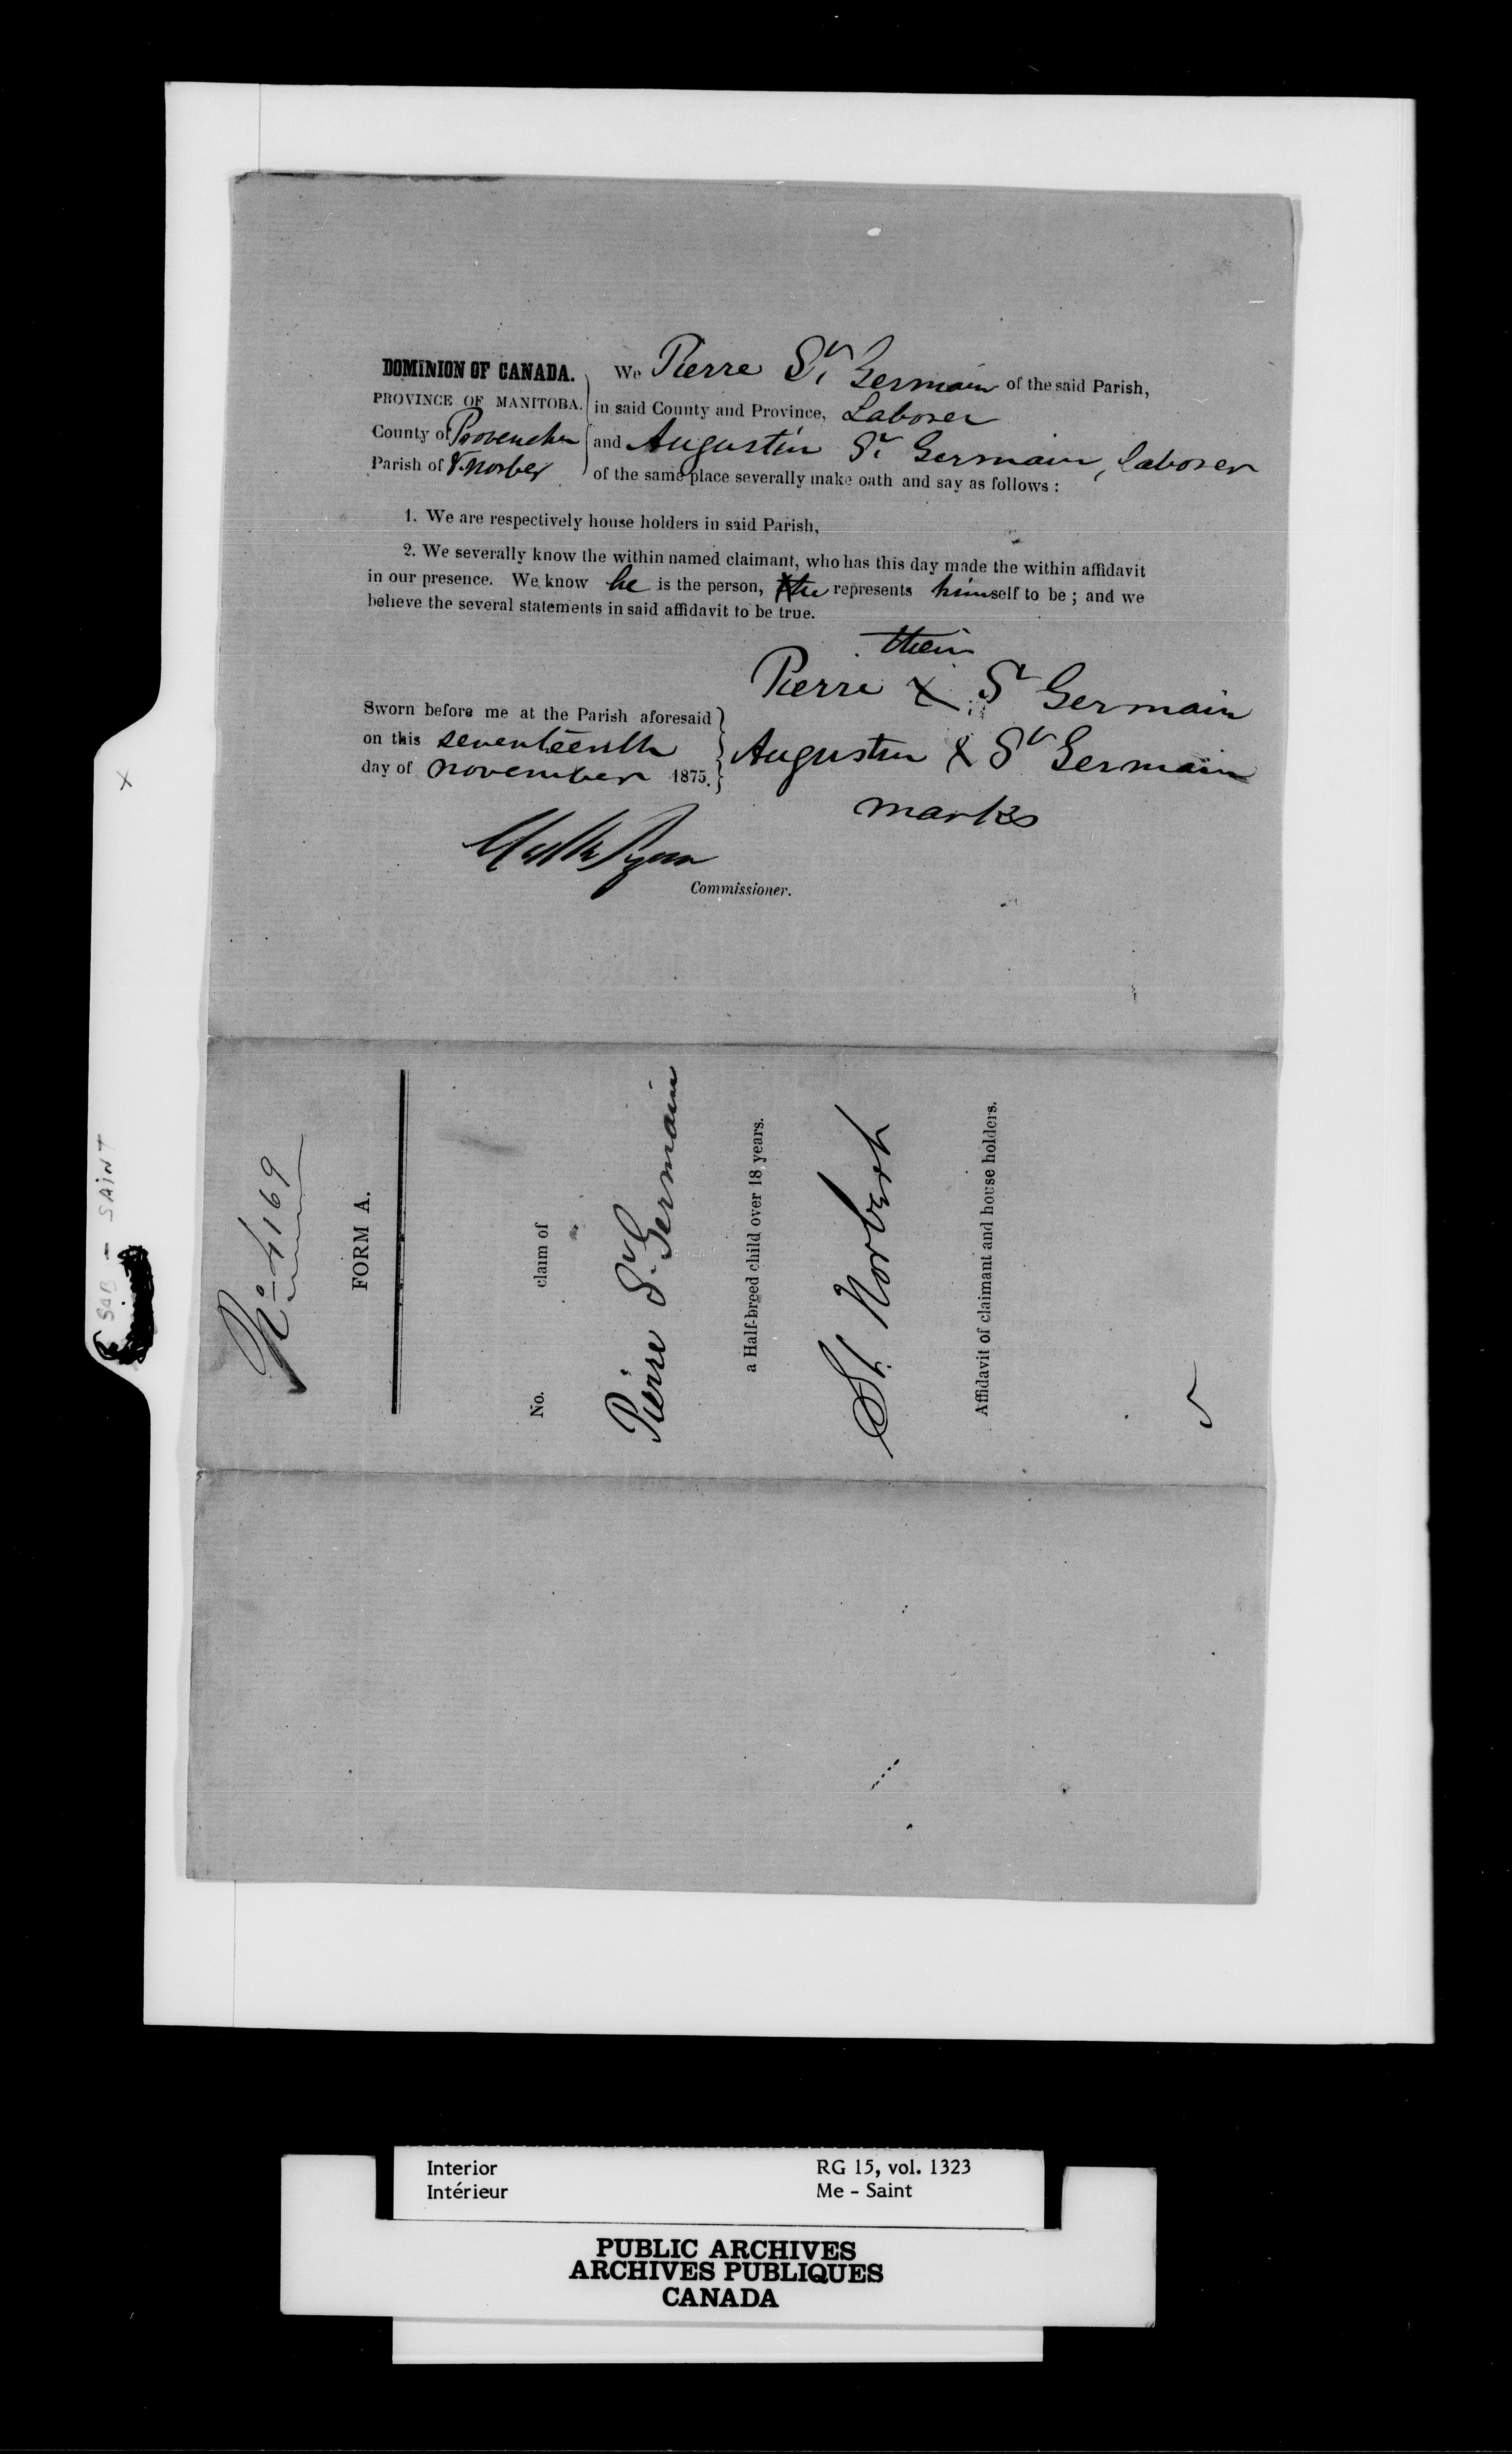 DOMINION OF CANADA.
PROVINCE OF MANITOBA.
County of Provencher
Parish of St. Norbert
We Pierre St. Germain of the said Parish,
in said County and Province, Laborer
and Augustin St. Germain, laborer
of the same place severally make oath and say as follows:
1. We are respectively house holders in said Parish,
2. We severally know the within named claimant, who has this day made the within affidavit
in our presence. We know he is the person, he represents himself to be; and we
believe the several statements in said affidavit to be true.
their
Pierre X St Germain
Augustin X St Germain
marks
Sworn before me at the Parish aforesaid
on this seventeenth
day of november 1875.
Commissioner.
No 4169
FORM A.
No. claim of
Pierre St Germain
a Half-breed child over 18 years.
St. Norbert
Affidavit of claimant and house holders.
X
SAB - SAINT
Interior RG 15, vol. 1323
Intérieur Me - Saint
PUBLIC ARCHIVES
ARCHIVES PUBLIQUES
CANADA